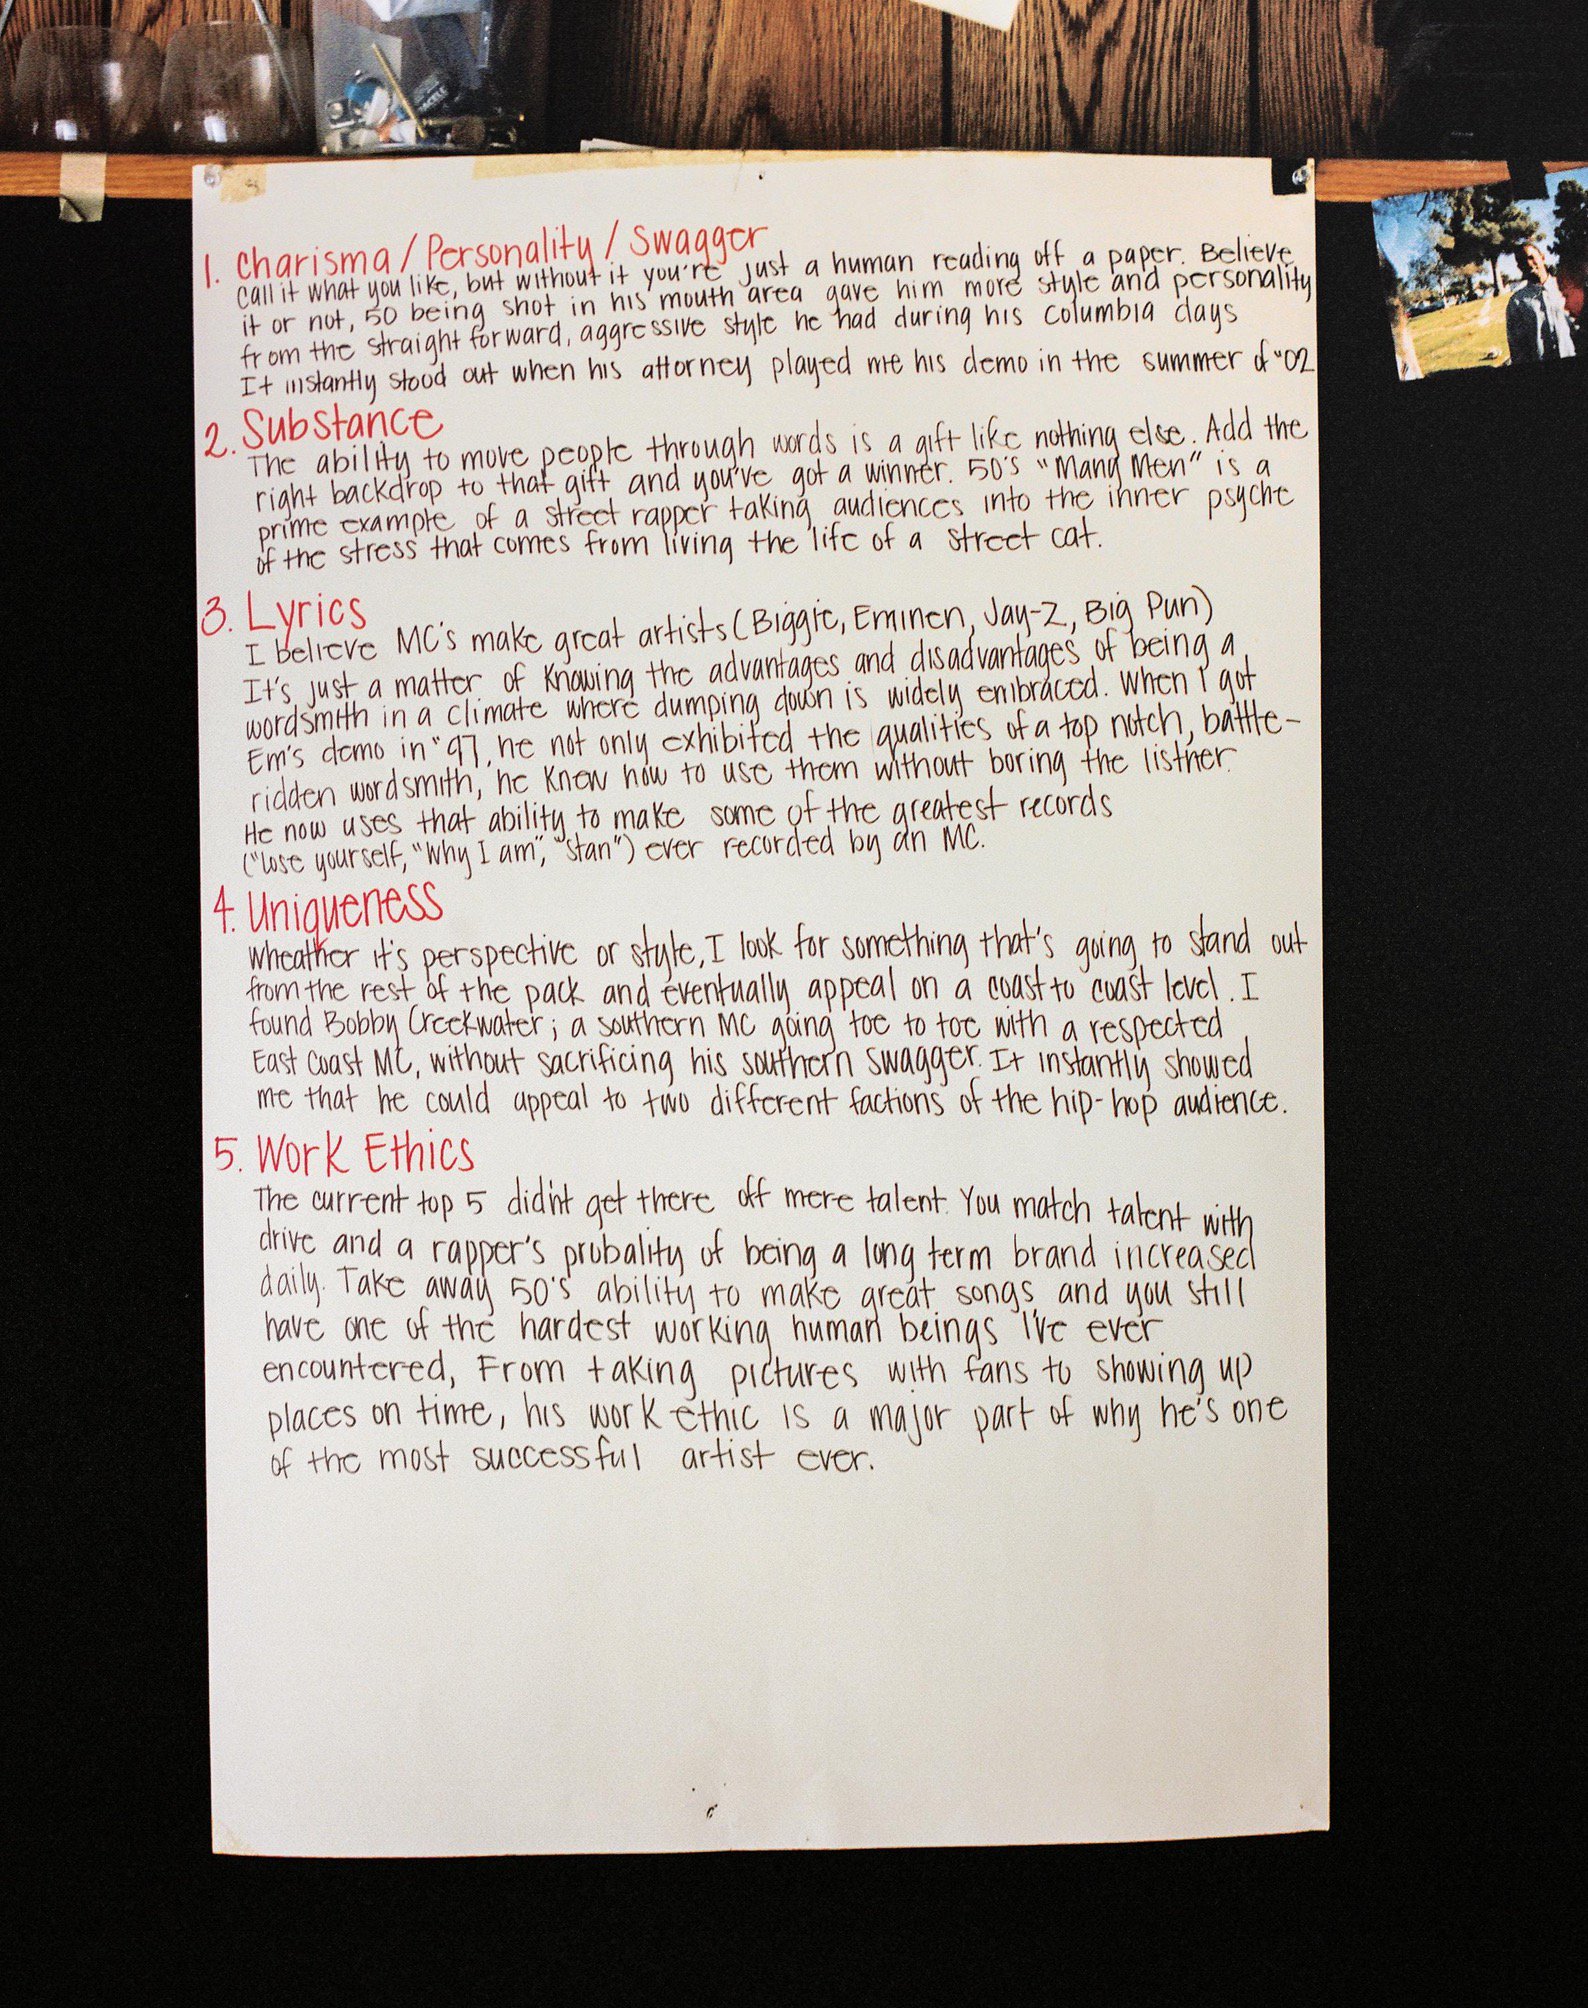 1. Charisma / Personality / Swagger
Call it what you like, but without it you're just a human reading off a paper. Believe
it or not, 50 being shot in his mouth area gave him more style and personality
from the straight forward, aggressive style he had during his Columbia days
It instantly stood out when his attorney played me his demo in the summer of "02
2. Substance
The ability to move people through words is a gift like nothing else. Add the
right backdrop to that gift and you've got a winner. 50's "Many Men" is a
prime example of a street rapper taking audiences into the inner psyche
of the stress that comes from living the life of a street cat.
3. Lyrics
I believe MC's make great artists (Biggie, Eminen, Jay-Z, Big Pun)
It's just a matter of knowing the advantages and disadvantages of being a
wordsmith in a climate where dumping down is widely embraced. When I got
Em's demo in "97, he not only exhibited the qualities of a top notch, battle-
ridden wordsmith, he knew how to use them without boring the listner.
He now uses that ability to make some of the greatest records
("Lose yourself, "Why I am", "Stan") ever recorded by an MC.
4. Uniqueness
Wheather it's perspective or style, I look for something that's going to stand out
from the rest of the pack and eventually appeal on a coast to coast level. I
found Bobby Creekwater; a southern MC going toe to toe with a respected
East Coast MC, without sacrificing his southern swagger. It instantly showed
me that he could appeal to two different factions of the hip-hop audience.
5. Work Ethics
The current top 5 didn't get there off mere talent. You match talent with
drive and a rapper's probality of being a long term brand increased
daily. Take away 50's ability to make great songs and you still
have one of the hardest working human beings I've ever
encountered, From taking pictures with fans to showing up
places on time, his work ethic is a major part of why he's one
of the most successful artist ever.